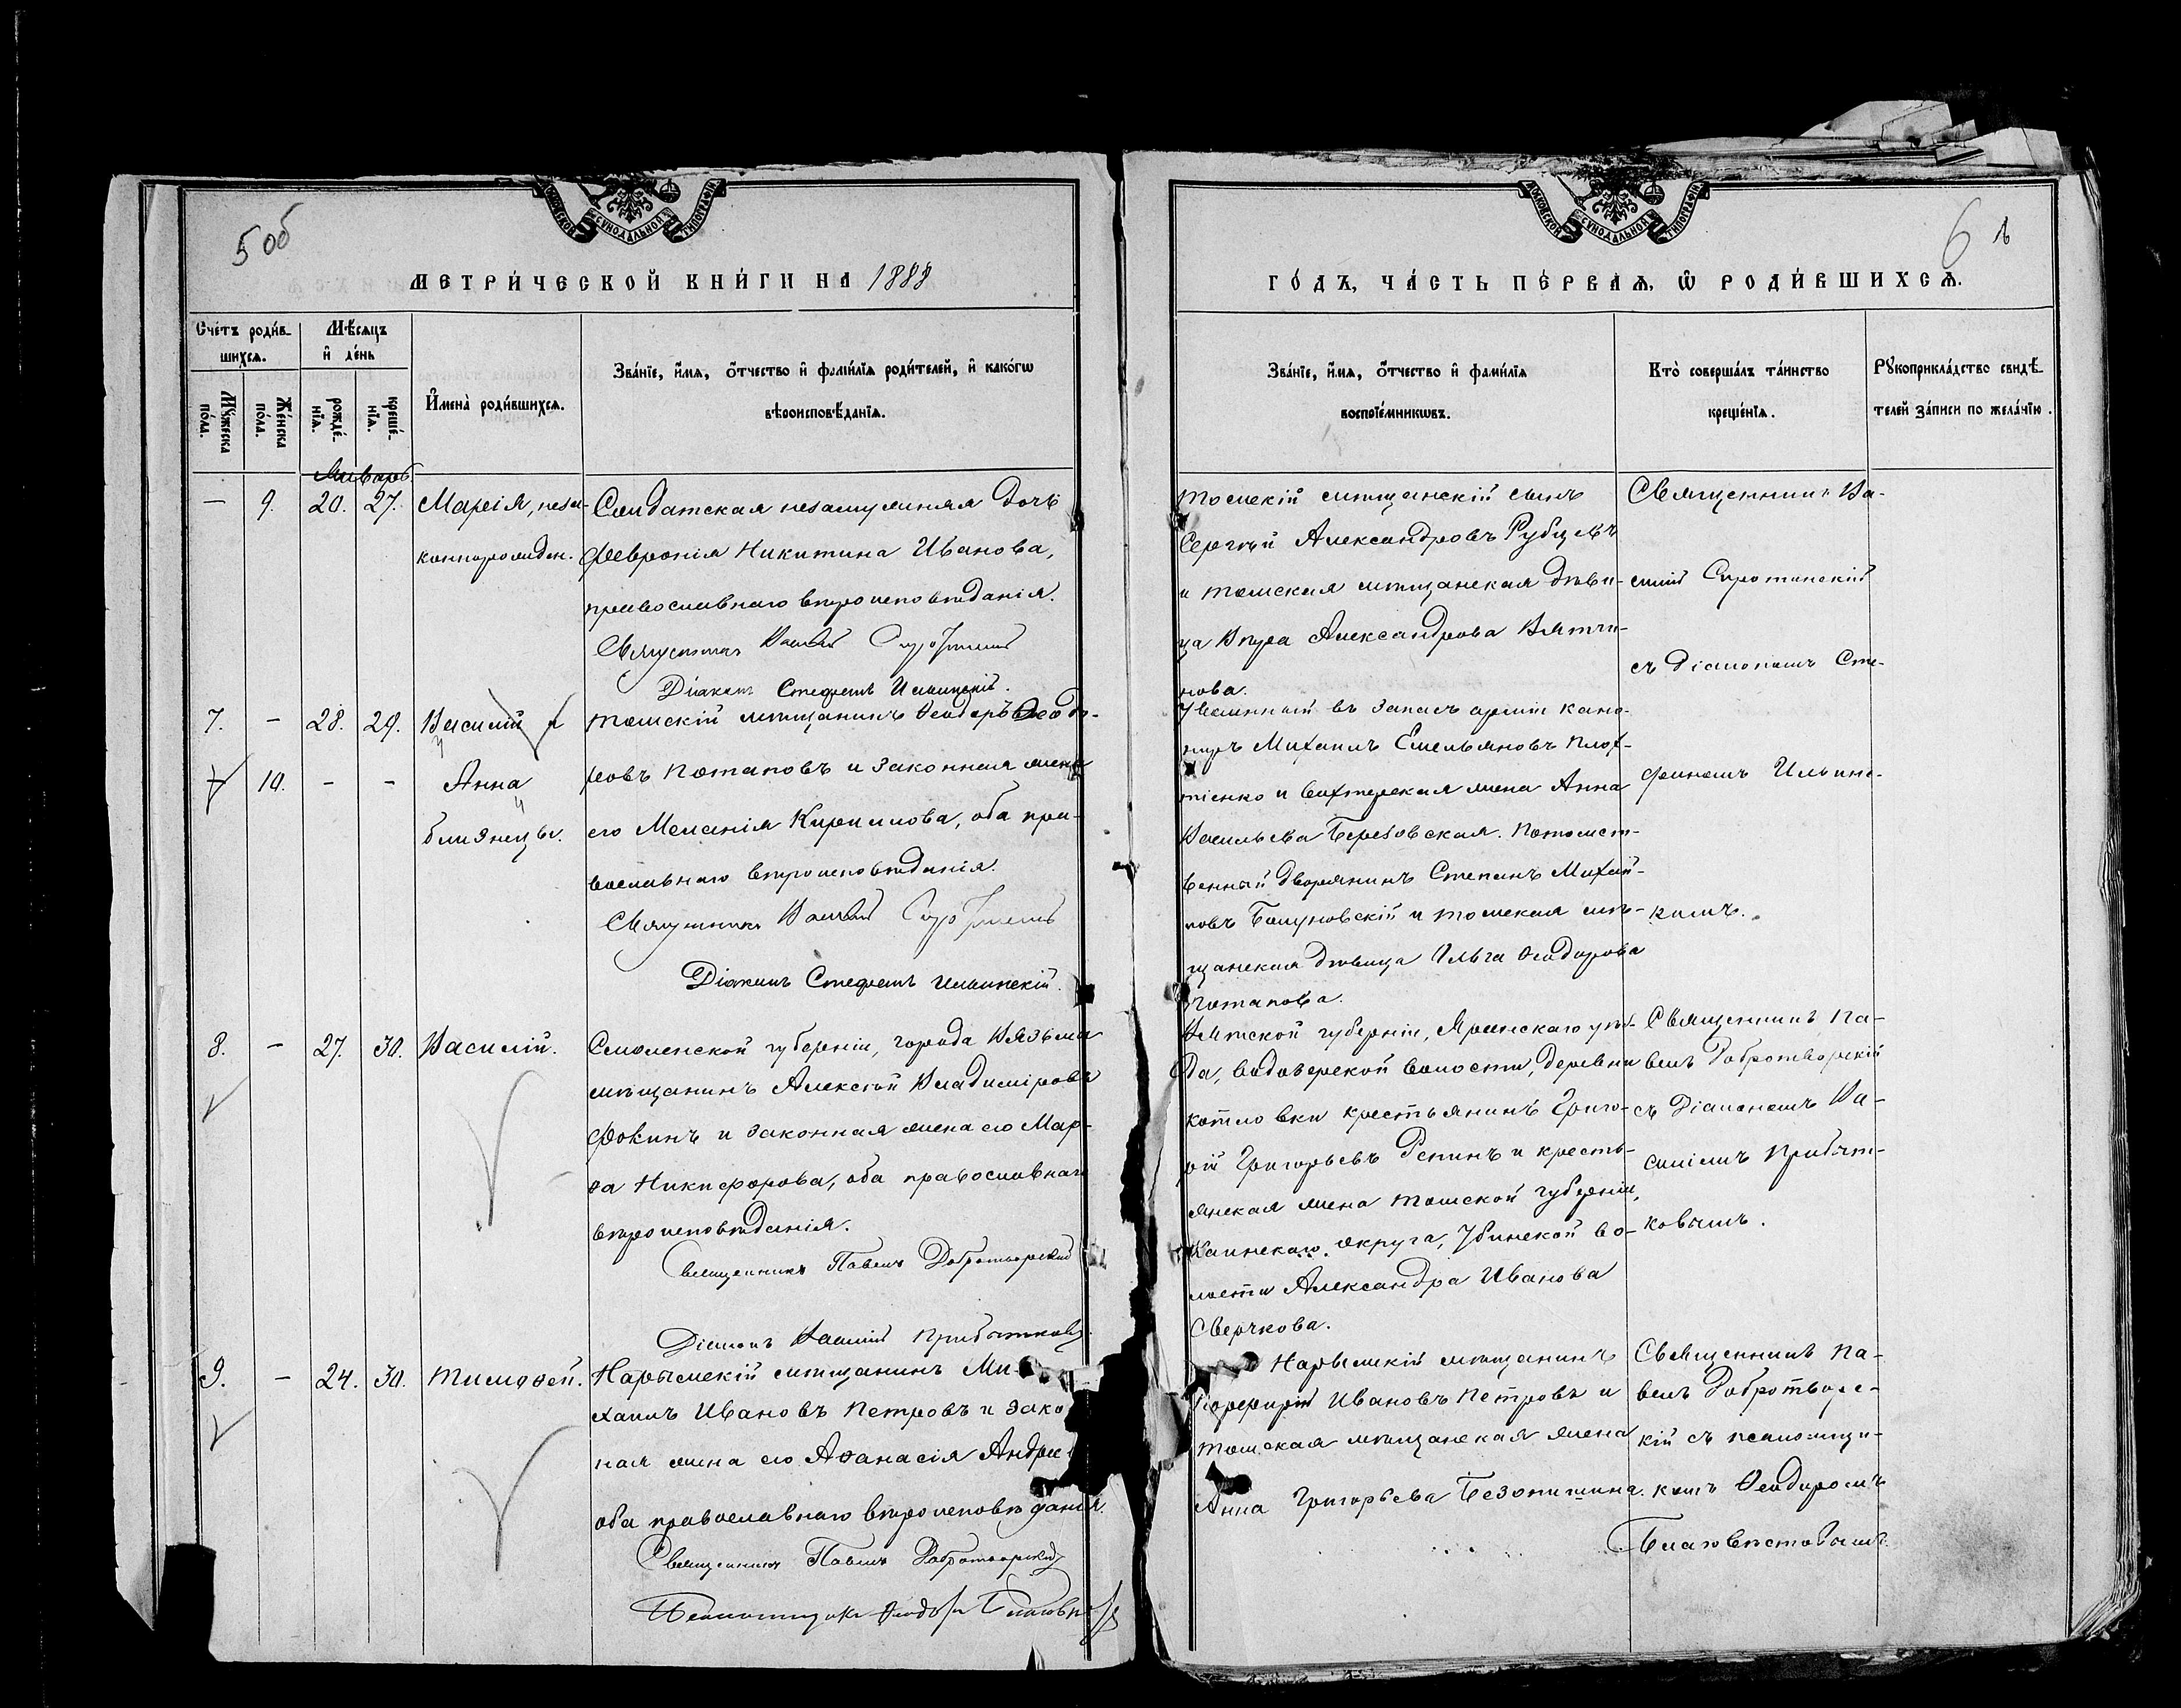 5 об
МОСКОВСКОЙ СѴНОДАЛЬНОЙ ТИПОГРАФІИ
МЕТРИ́ЧЕСКОЙ КНИ́ГИ НА 1888
Сче́тъ роди́в-
шихсѧ.
Мѣ́сѧцъ
и҆ де́нь
Мꙋ́жеска
по́ла.
Же́нска
по́ла.
рожде́-
нїѧ.
креще́-
нїѧ.
И҆мена̀ роди́вшихсѧ.
Зва́нїе, и҆́мѧ, ѻ҆́тчество и҆ фамі́лїѧ роди́телей, и҆ како́гѡ
вѣроисповѣ́данїѧ.
Январь
— 9. 20. 27. Марія, неза-
коннорожден.
Солдатская незамужняя дочь
Февронія Никитина Иванова,
православнаго вѣроисповѣданія.
Священникъ Василій Сиротинскій
Діаконъ Стефанъ Ильинскій.
7. — 28. 29. Василій
и
— 10. — — Анна
близнецы.
Томскій мѣщанинъ Ѳеодоръ Ѳеодо-
ровъ Потаповъ и законная жена
его Меланія Кириллова, оба пра-
вославнаго вѣроисповѣданія.
Священникъ Василій Сиротинскій
Діаконъ Стефанъ Ильинскій.
8. — 27. 30. Василій.
Смоленской губерніи, города Вязьмы
мѣщанинъ Алексѣй Владиміровъ
Фокинъ и законная жена его Мар-
ѳа Никифорова, оба православнаго
вѣроисповѣданія.
Священникъ Павелъ Добротворскій
Діаконъ Василій Прибытковъ.
9. — 24. 30. Тимоѳей.
Нарымскій мѣщанинъ Ми-
хаилъ Ивановъ Петровъ и зако
ная жена его Аѳанасія Андре
оба православнаго вѣроисповѣданія.
Священникъ Павелъ Добротворскій
Псаломщикъ Ѳеодоръ
6
МОСКОВСКОЙ СѴНОДАЛЬНОЙ ТИПОГРАФІИ
ГО́ДЪ, ЧА́СТЬ ПЕ́РВАѦ, Ѡ҆ РОДИ́ВШИХСѦ.
Зва́нїе, и҆́мѧ, ѻ҆́тчество и҆ фамі́лїѧ
воспрїе́мникѡвъ.
Кто̀ соверша́лъ та́инство
креще́нїѧ.
Рꙋкоприкла́дство свидѣ́-
телей за́писи по жела́нїю.
Томскій мѣщанскій сынъ
Сергѣй Александровъ Рубцевъ
и томская мѣщанская дѣви-
ца Вѣра Александрова Вятчи-
нова.
Священникъ Ва-
силій Сиротинскій
съ діакономъ Сте-
фаномъ Ильинс-
кимъ.
Уволенный въ запасъ арміи кано-
ниръ Михаилъ Емельяновъ Плот-
ніенко и вахтерская жена Анна
Васильева Березовская. Потомст-
венный дворянинъ Степанъ Михай-
ловъ и томская мѣ-
щанская дѣвица Ольга Ѳеодорова
Потапова.
Вятской губерніи, Яранскаго уѣз-
да, волости, деревни
Котловки крестьянинъ Григо-
рій Григорьевъ Репинъ и кресть-
янская жена Томской губерніи,
Каинскаго округа, Убинской во-
лости Александра Иванова
Сверчкова.
Священникъ Па-
велъ Добротворскій
съ діакономъ Ва-
силіемъ Прибыт-
ковымъ.
Нарымскій мѣщанинъ
Порфирій Ивановъ Петровъ и
томская мѣщанская жена
Анна Григорьева Безопишина.
Священникъ Па-
велъ Добротворс-
кій съ псаломщи-
комъ Ѳеодоромъ
Благовѣстовымъ.